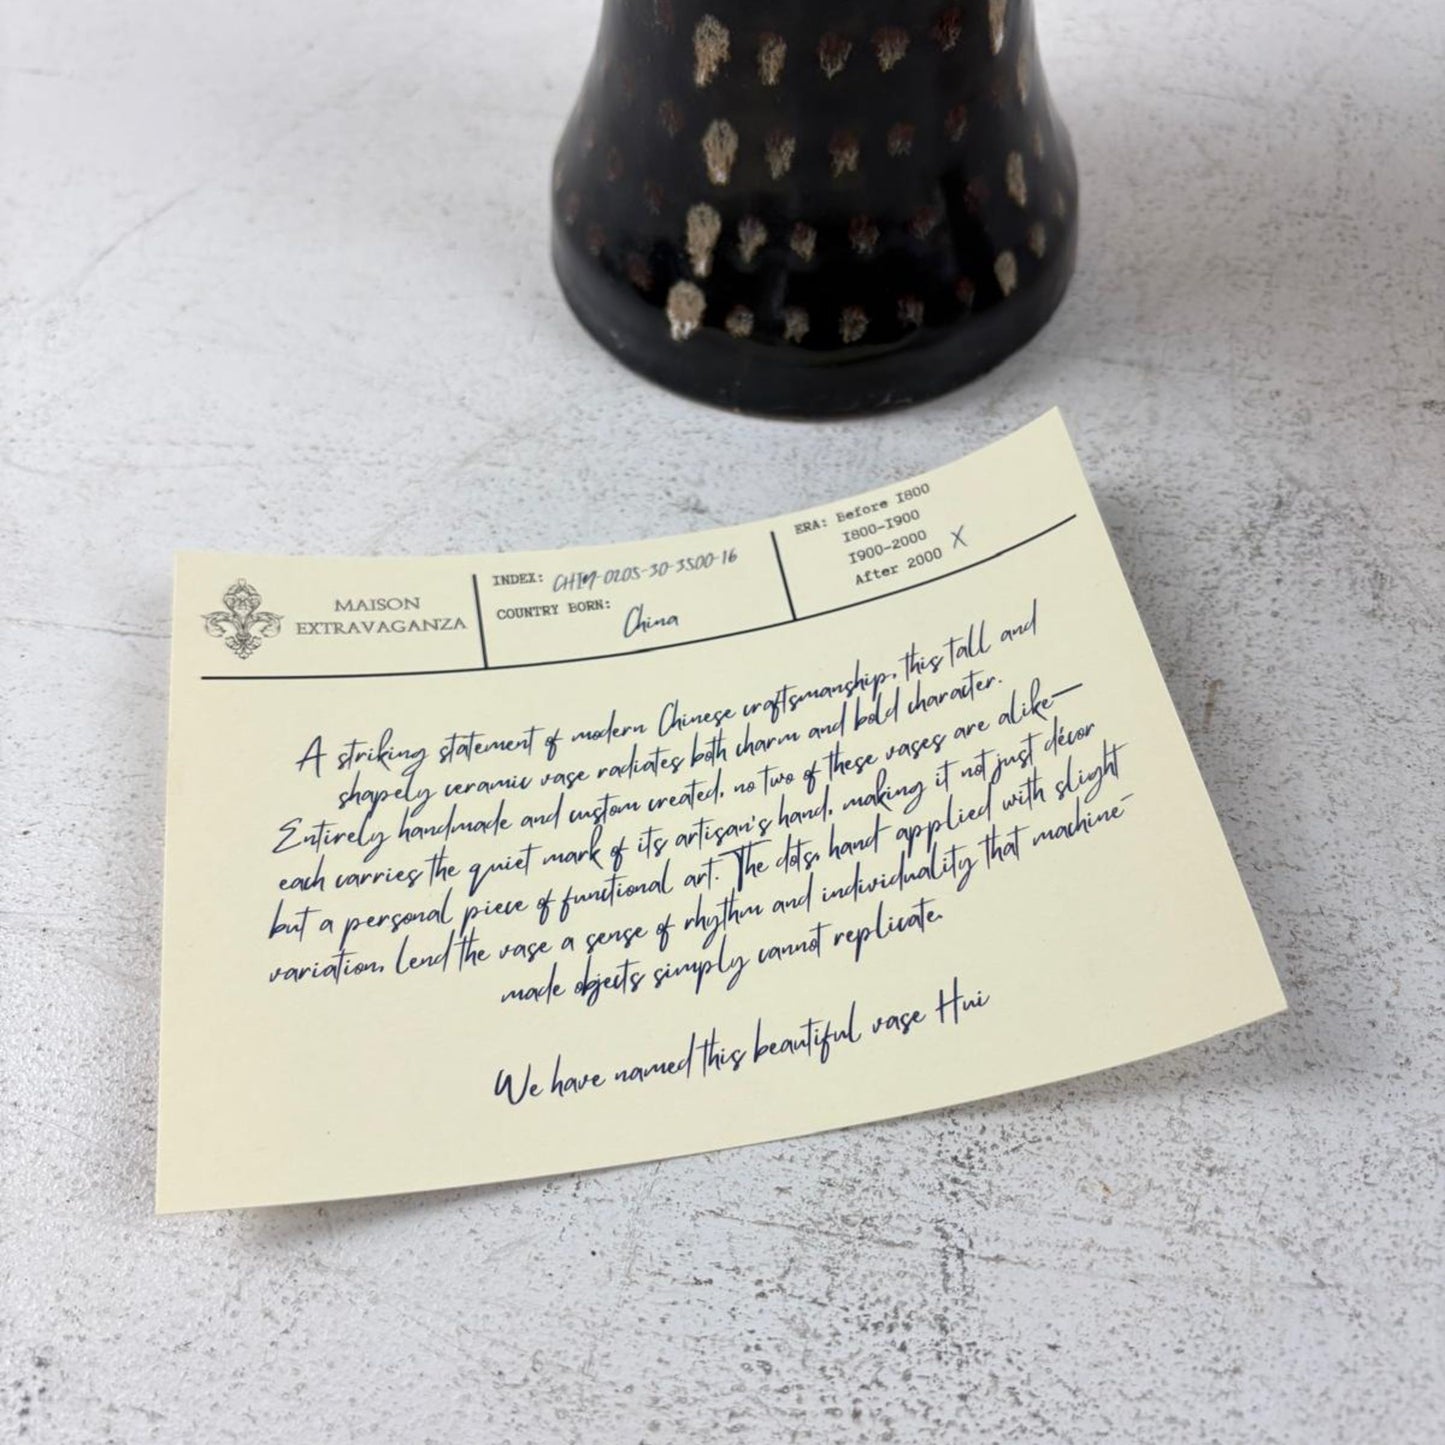 MAISON
EXTRAVAGANZA
INDEX: CHIM-0205-30-3500-16
COUNTRY BORN:
China
ERA: Before 1800
1800-1900
1900-2000
After 2000 X
A striking statement of modern Chinese craftsmanship, this tall and
shapely ceramic vase radiates both charm and bold character.
Entirely handmade and custom created, no two of these vases are alike—
each carries the quiet mark of its artisan's hand, making it not just décor
but a personal piece of functional art. The dots, hand applied with slight
variation, lend the vase a sense of rhythm and individuality that machine-
made objects simply cannot replicate.
We have named this beautiful vase Hui